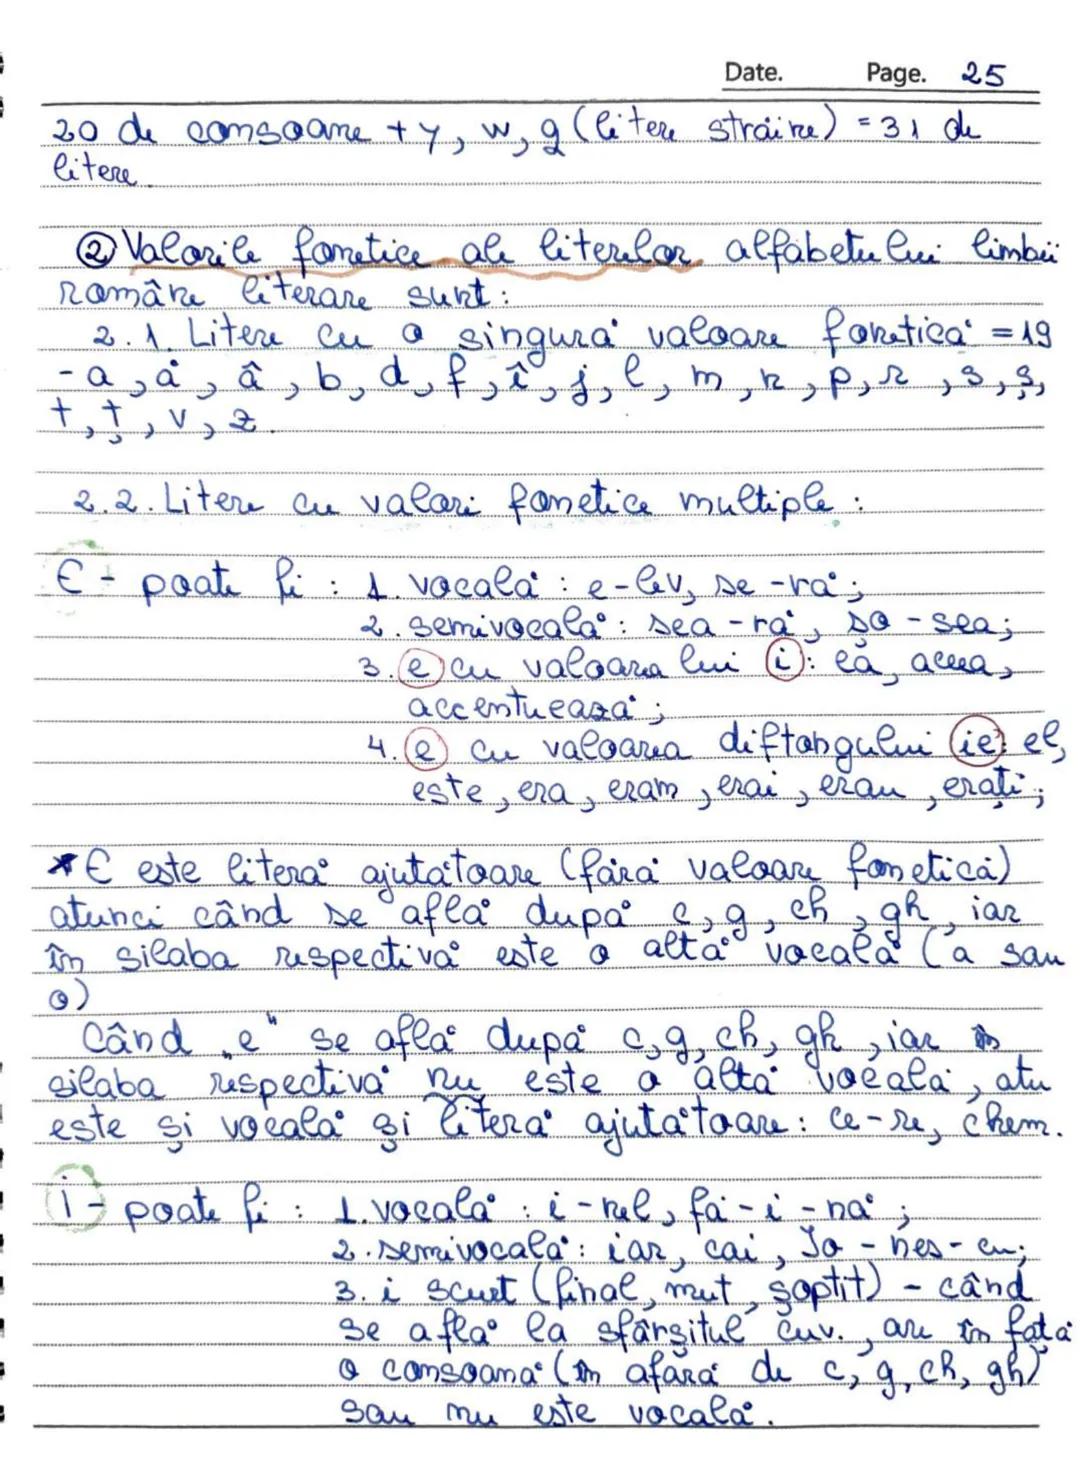 Date. Page. 25
20 de consoane + y, w, q (litere străine) = 31 de
litere
② Valorile fonetice ale literelor alfabetului limbii
române literare sunt:
2.1. Litere cu o singură valoare fonetică = 19
- a, ă, â, b, d, f, î, j, l, m, n, p, r, s, ș,
t, ț, v, z.
2.2. Litere cu valori fonetice multiple:
E - poate fi: 1. vocală: e-lev, se-ră;
2. semivocală: sea-ră, șo-sea;
3. e cu valoarea lui i: ea, aceea,
accentuează;
4. e cu valoarea diftongului ie: el,
este, era, eram, erai, erau, erați;
* E este literă ajutătoare (fără valoare fonetică)
atunci când se află după c, g, ch, gh, iar
în silaba respectivă este o altă vocală (a sau
o)
Când „e" se află după c, g, ch, gh, iar în
silaba respectivă nu este o altă vocală, atu
este și vocală și literă ajutătoare: ce-re, chem.
i - poate fi: 1. vocală: i-nel, fă-i-nă;
2. semivocală: iar, cai, Io-nes-cu;
3. i scurt (final, mut, șoptit) - când
se află la sfârșitul cuv., are în față
o consoană (în afară de c, g, ch, gh)
sau nu este vocală.